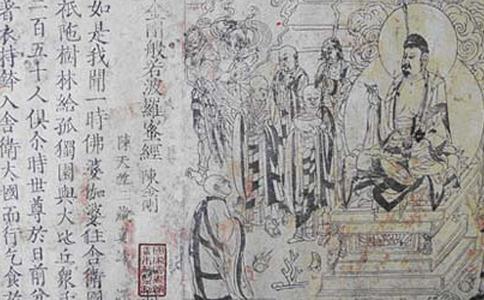 金剛般若波羅蜜經 陳 金剛
陳天竺三藏真諦
如是我聞一時佛婆伽婆住舍衛國
祇陀樹林給孤獨園與大比丘眾千
二百五十人俱尒時世尊於日前分
著衣持鉢入舍衛大國而行乞食於